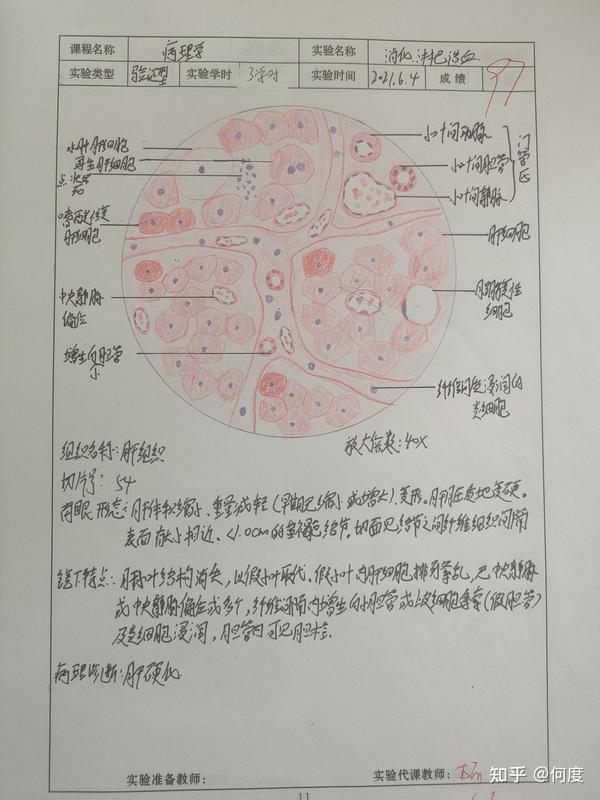 课程名称 病理学 实验名称 消化、淋巴造血
实验类型 验证型 实验学时 3学时 实验时间 2021.6.4 成绩 97
水肿肝细胞
再生肝细胞
点状坏
死
嗜酸性变
肝细胞
中央静脉
偏位
增生的胆管
小叶间动脉
小叶间胆管
小叶间静脉
门管区
肝细胞
脂肪变性
细胞
纤维间质浸润的
炎细胞
组织名称:肝组织 放大倍数:40X
切片号:54
肉眼形态:肝体积缩小、重量减轻(早期已缩小或增大)、变形。肝脏质地变硬。
表面有大小相近、<1.0cm的结节。切面见结节之间纤维组织间隔
镜下特点:肝小叶结构消失,以假小叶取代。假小叶内肝细胞排列紊乱,见中央静脉
或中央静脉偏位或多个,纤维间隔内增生的小胆管或上皮细胞条索(假胆管)
及炎细胞浸润,胆管内可见胆栓.
病理诊断:肝硬化
实验准备教师: 实验代课教师:
11
知乎 @何度